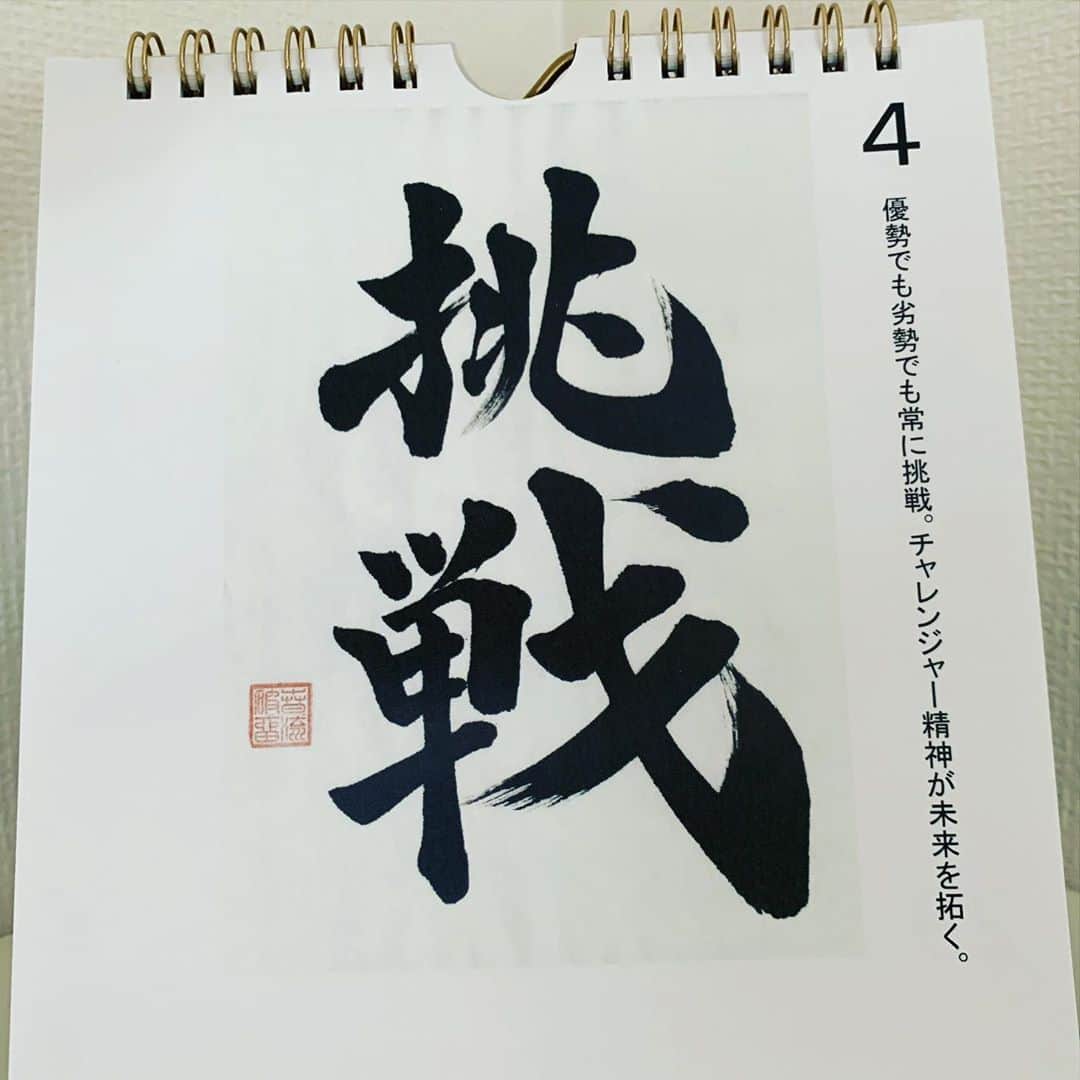 4
優勢でも劣勢でも常に挑戦。チャレンジャー精神が未来を拓く。
挑戦